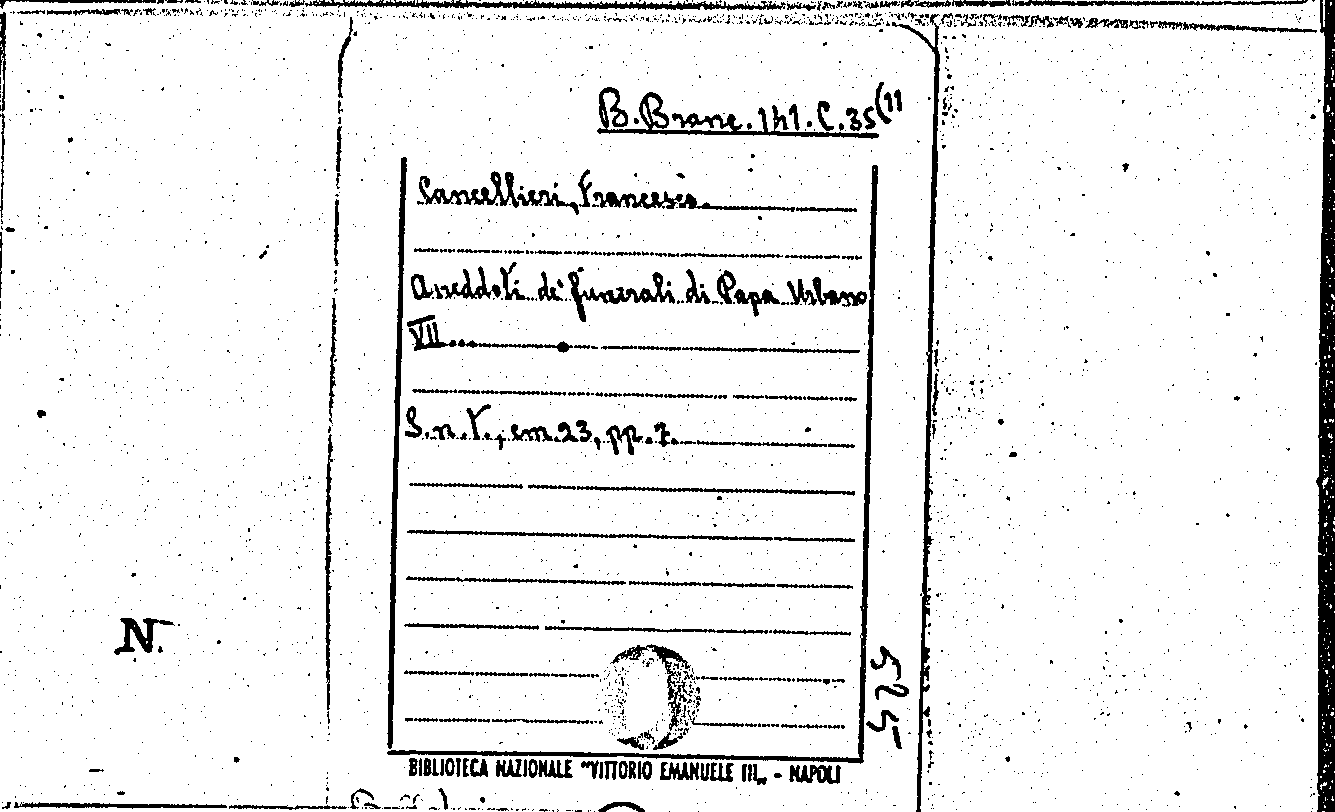 B.Branc.141.C.35(11
Cancellieri, Francesco.
Aneddoti de' funerali di Papa Urbano
VII...
S.n.t., cm.23, pp.7.
N.
525
BIBLIOTECA NAZIONALE "VITTORIO EMANUELE III„ - NAPOLI